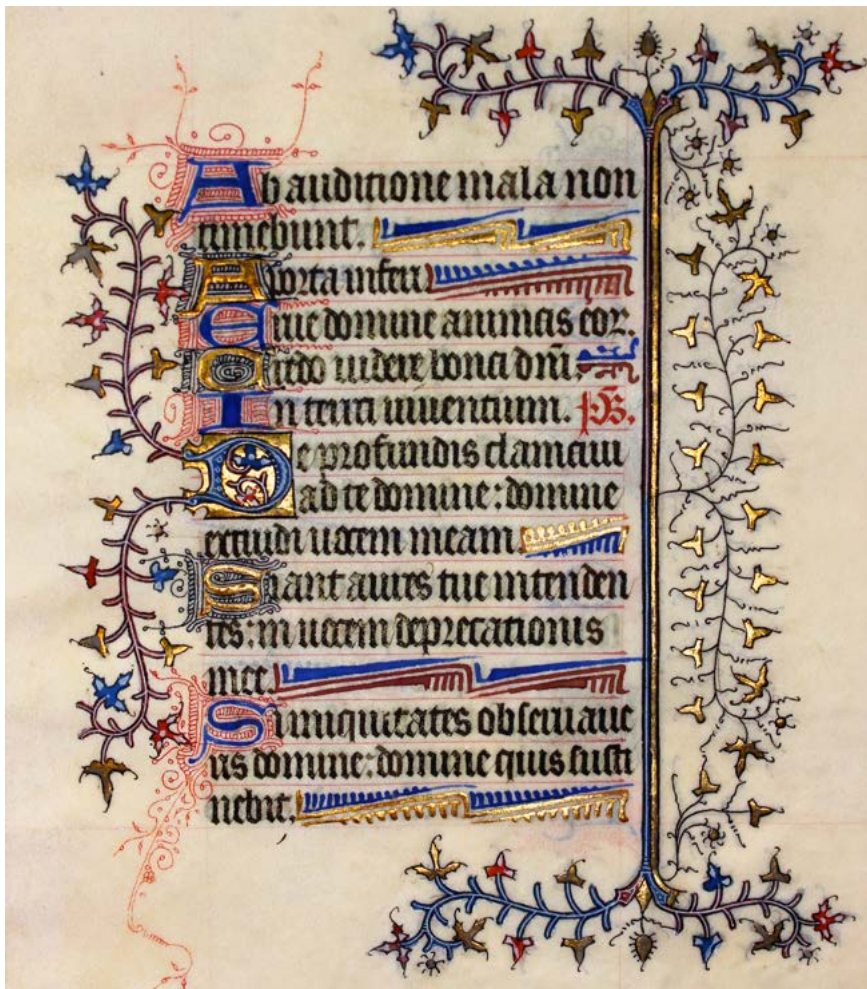 Ab auditione mala non
timebunt.
A porta inferi
Erue domine animas eor.
Credo uidere bona dñi.
In terra uiuentium. p̄s.
De profundis clamaui
ad te domine: domine
exaudi uocem meam.
Fiant aures tue intenden
tes: in uocem deprecationis
mee.
Si iniquitates obseruaue
ris domine: domine quis susti
nebit.